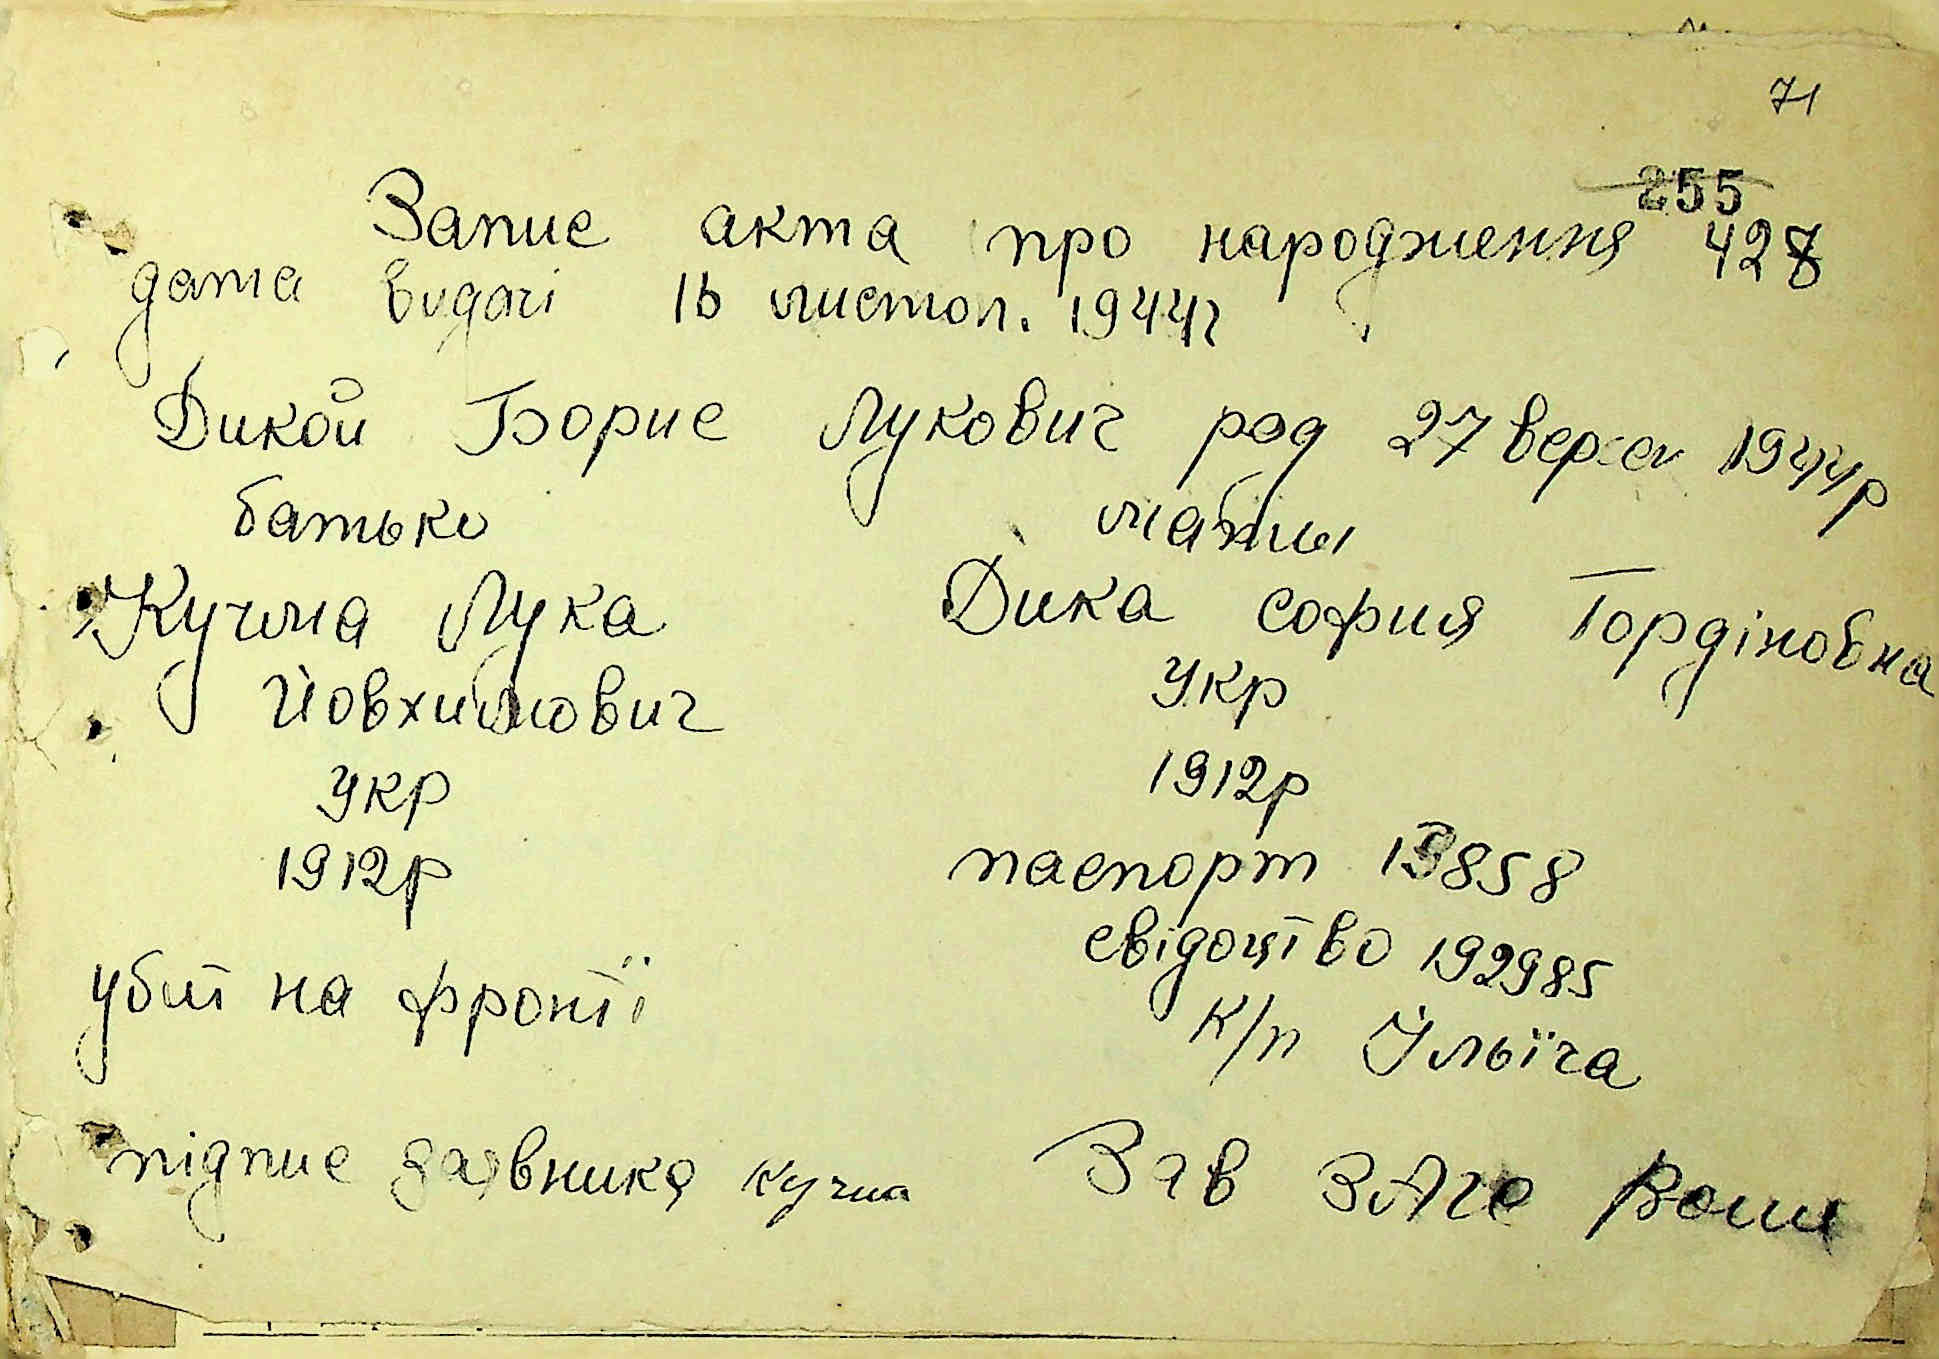 71
255
Запис акта про народження 428
дата видачі 16 листоп. 1944г
Дикой Борис Лукович род 27 вересн 1944р
батько мати
Кучма Лука Дика софия Гордіновна
Йовхимович укр
укр 1912р
1912р паспорт 13858
свідоцтво 192985
убит на фронті к/п Ільїча
підпис заявника кучма Зав ЗАГС